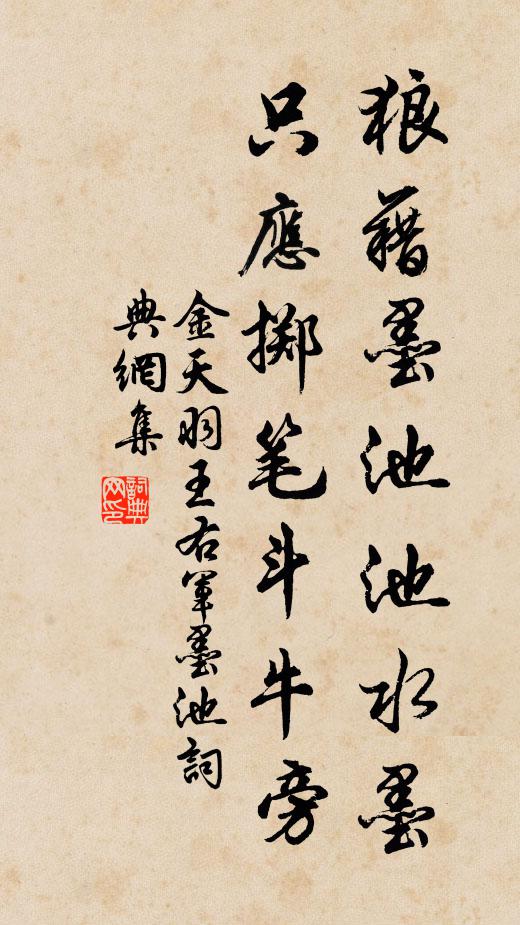 狼藉墨池池水墨
只應擲笔斗牛旁
金天羽王右軍墨池詞
典網集
詞典网印